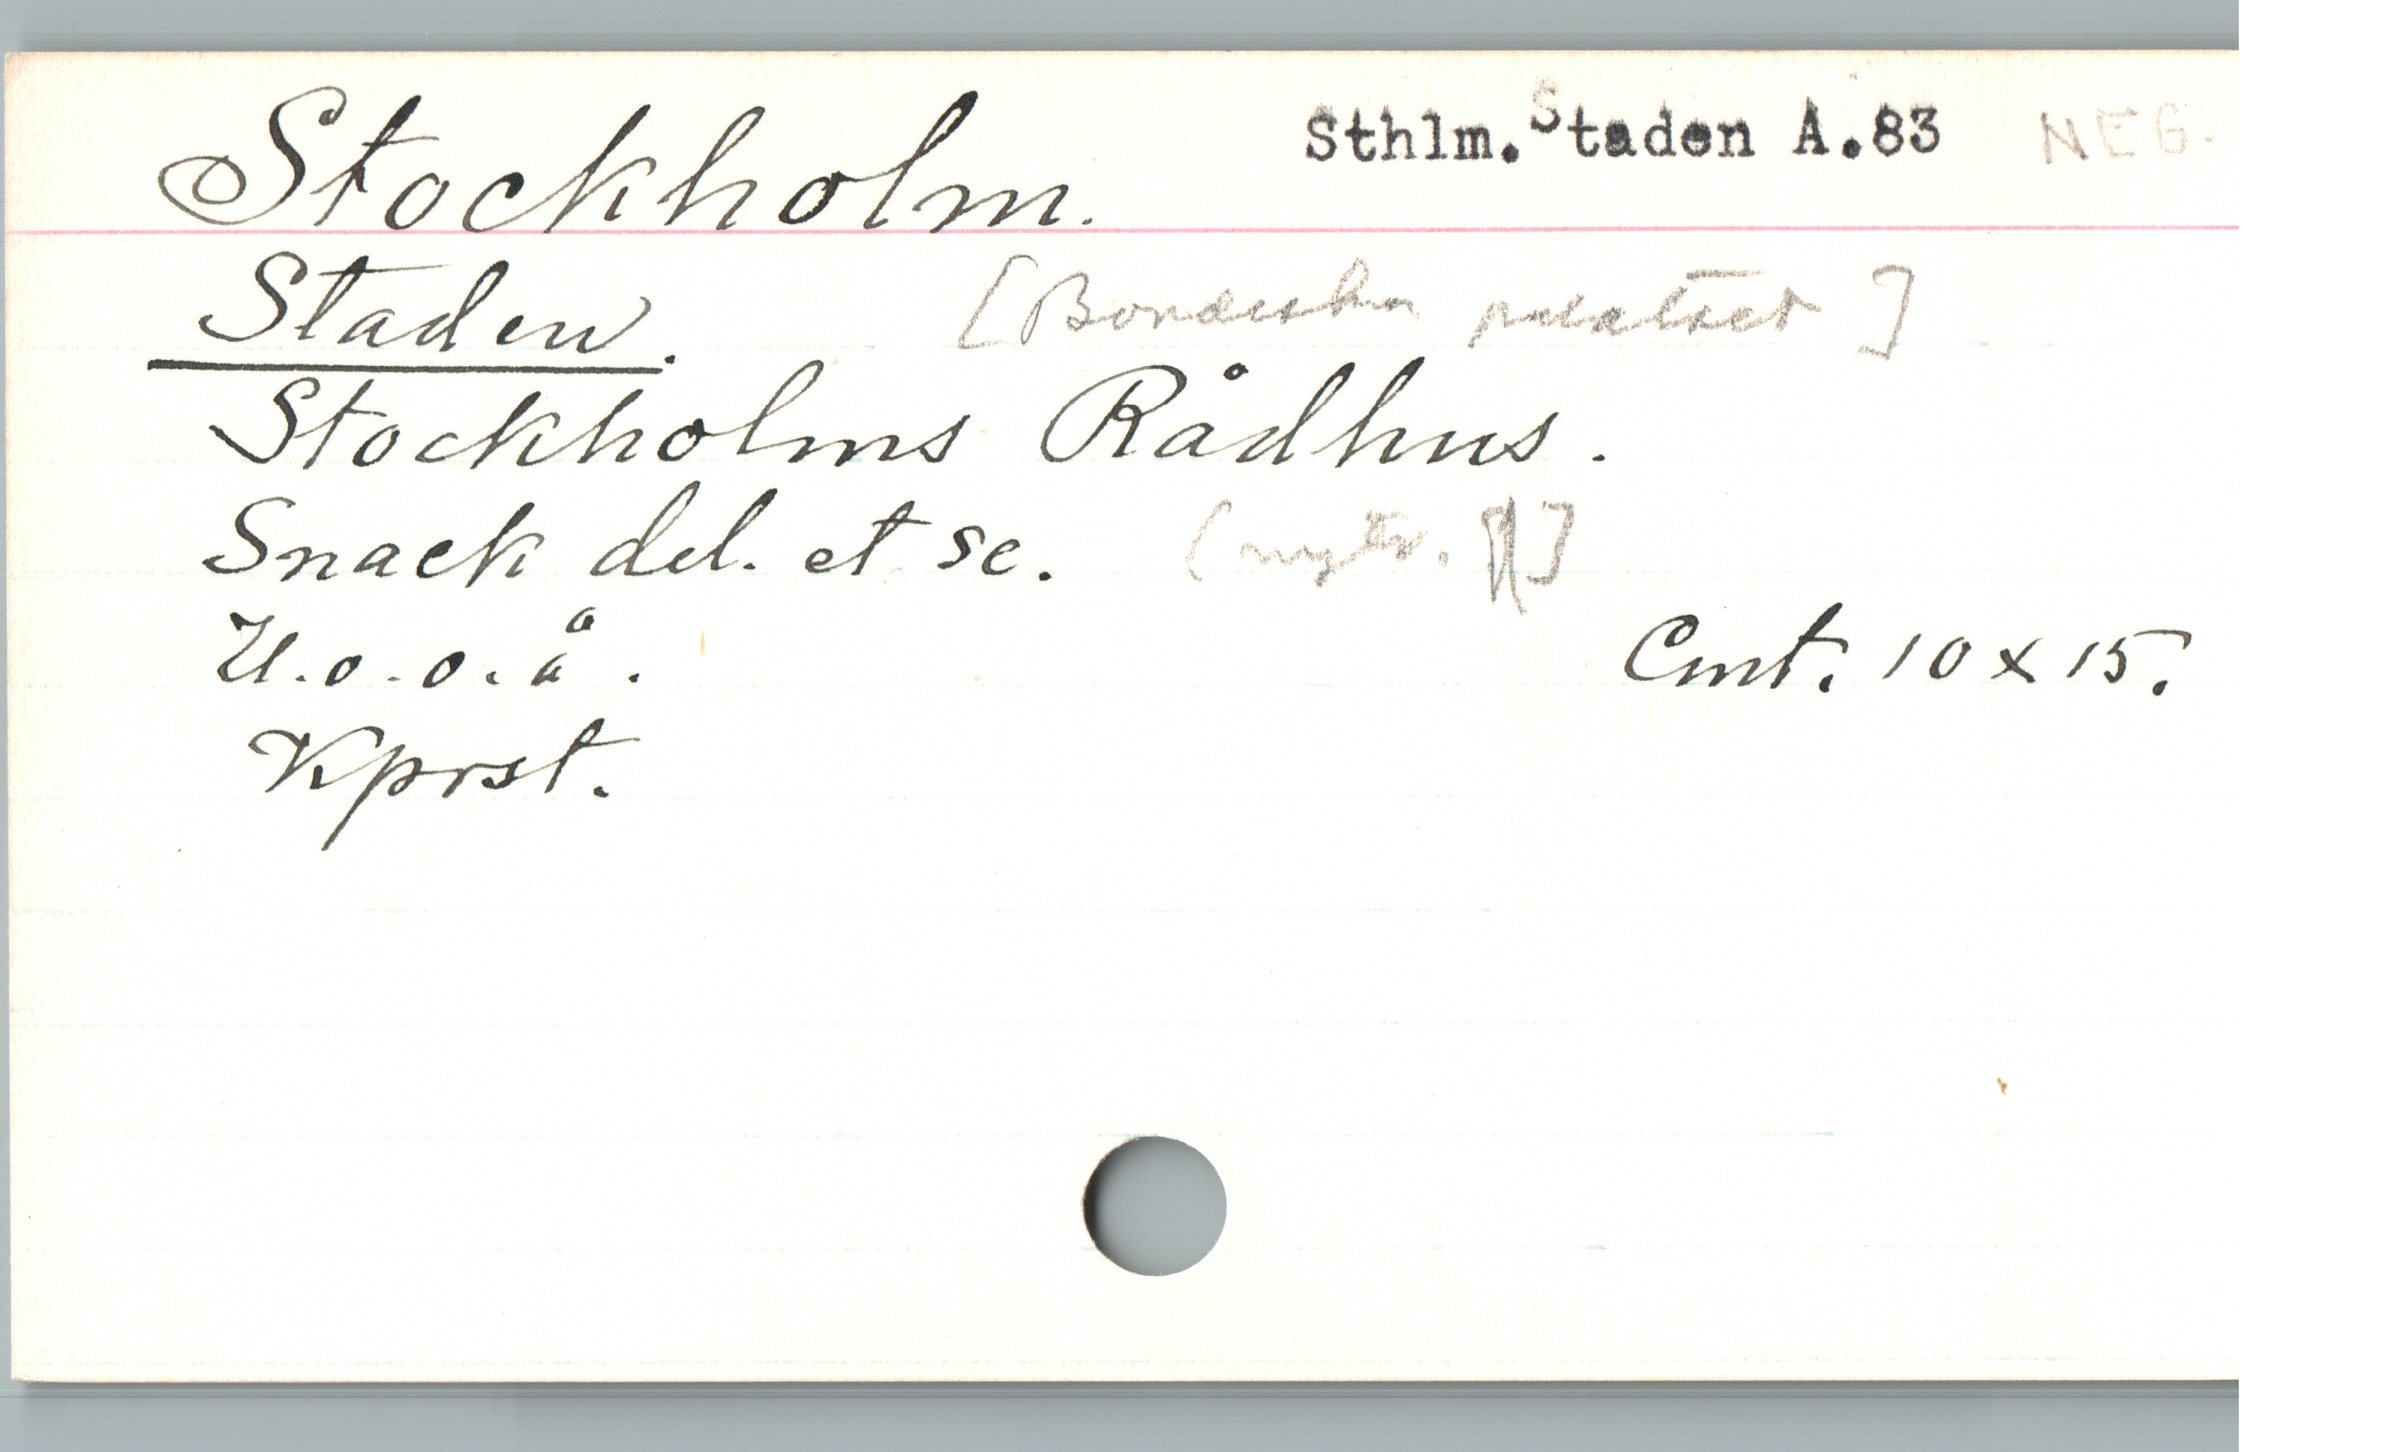 Stockholm. Sthlm. Staden A.83 NEG.
Staden. [Bondeska palatset]
Stockholms Rådhus.
Snack del. et sc.
U.o.o.å. Cmt. 10 x 15.
Kprst.